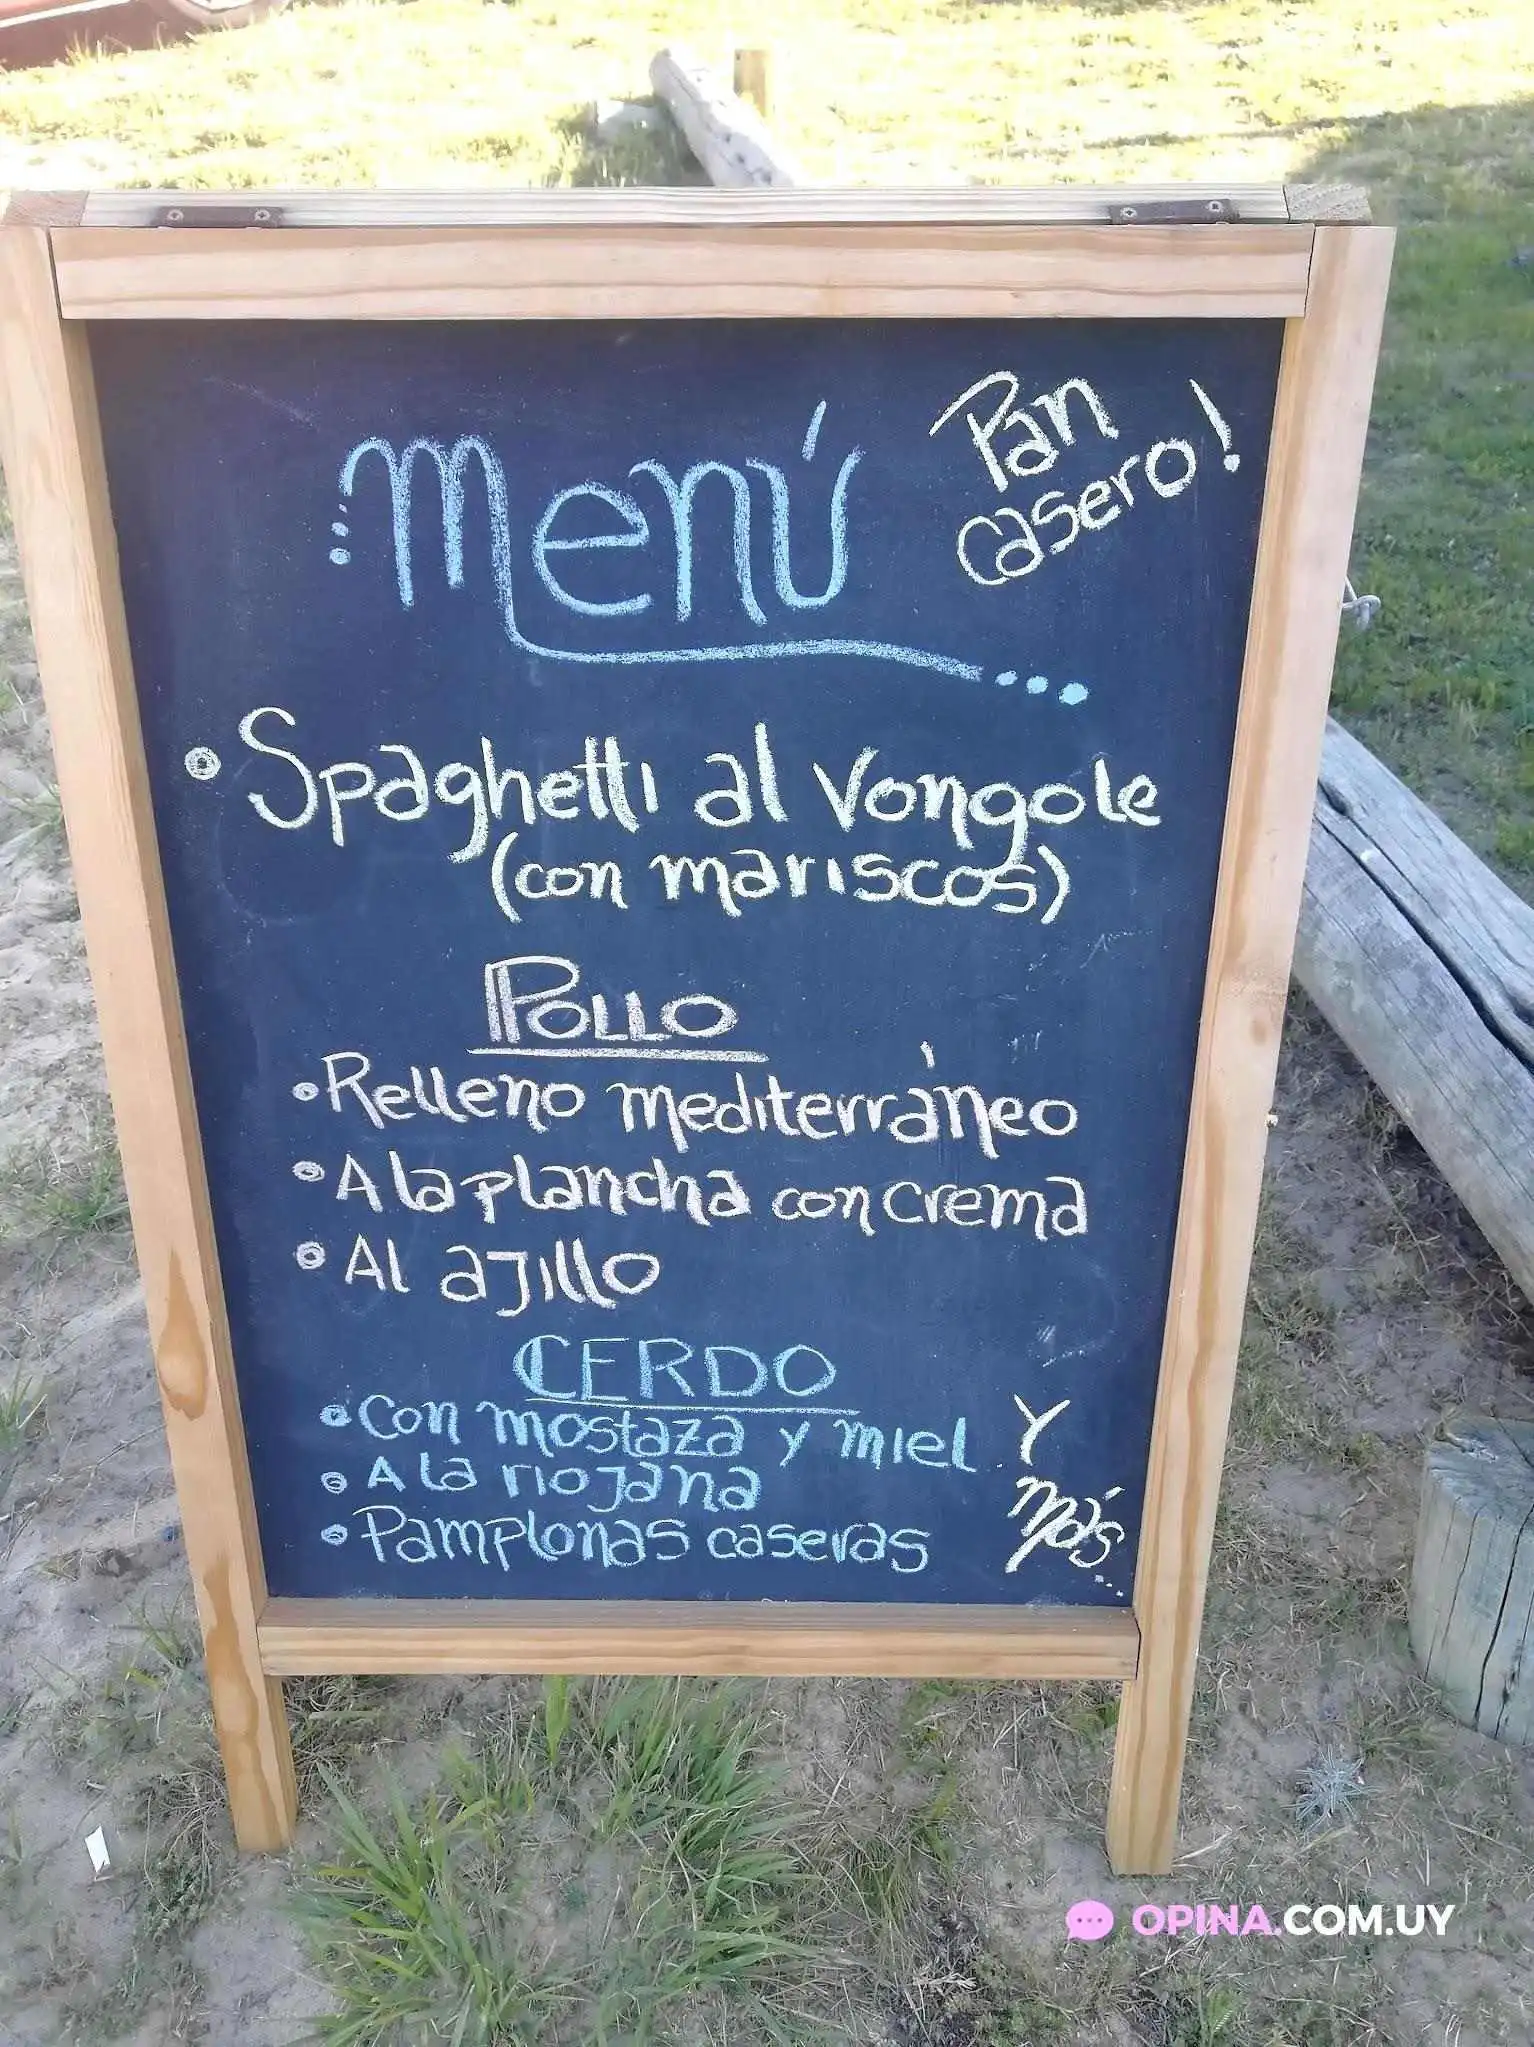 Menú
Pan
casero!
Spaghetti al Vongole
(con mariscos)
POLLO
Relleno mediterráneo
A la plancha con crema
Al ajillo
CERDO
Con mostaza y miel
A la riojana
Pamplonas caseras
Y
más...
OPINA.COM.UY